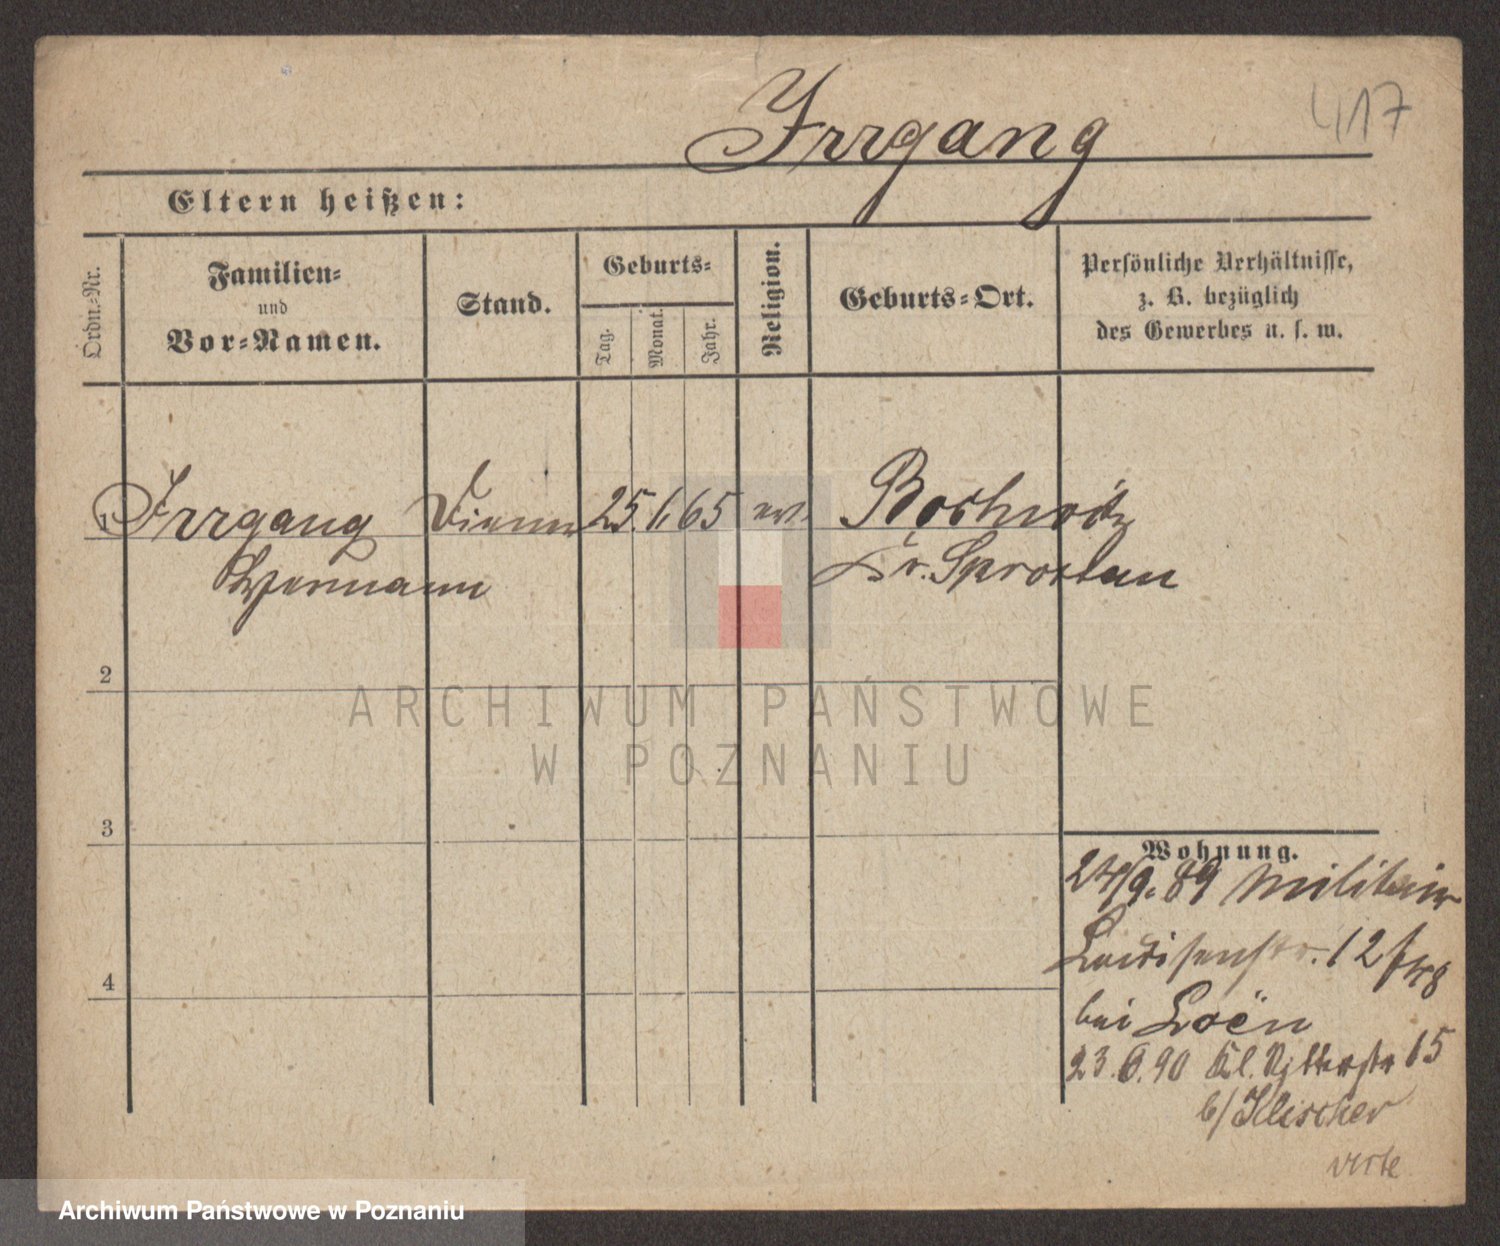 417
Irrgang
Eltern heißen:
Ordn.=Nr.
Familien=
und
Vor=Namen.
Stand.
Geburts=
Tag.
Monat.
Jahr.
Religion.
Geburts=Ort.
Persönliche Verhältnisse,
z. B. bezüglich
des Gewerbes u. s. w.
1 Irrgang Diener 25. 1. 65 ev.
Hermann Kr. Sprottau
2
3
4
Wohnung.
24/9. 89 Militair
Louisenstr. 12
bei Loën
23.6.90 Kl. Ritterstr 15
b/
verte
ARCHIWUM PAŃSTWOWE
W POZNANIU
Archiwum Państwowe w Poznaniu